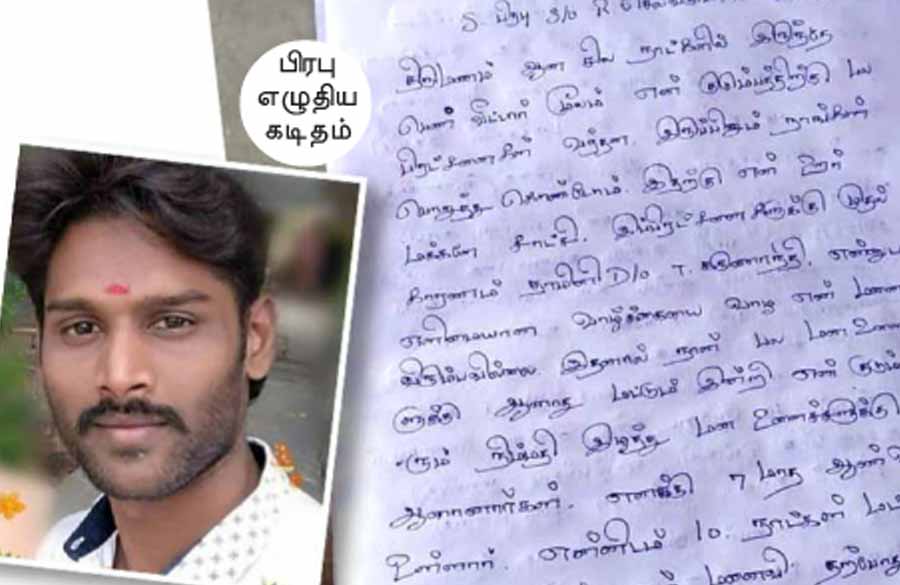 பிரபு
எழுதிய
கடிதம்
S பிரபு S/o R
திருமணம் ஆன சில நாட்களில் இருந்தே
பெண் வீட்டார் மூலம் என் குடும்பத்திற்கு பல
பிரட்சினைகள் வந்தன. இருப்பினும் நாங்கள்
பொறுத்து கொண்டோம். இதற்கு என் ஊர்
மக்களே சாட்சி. இப்பிரட்சினைகளுக்கு முதல்
காரணம் D/o T. கருணாநிதி. என்னுட
எளிமையான வாழ்க்கையை வாழ என் மனை
விரும்பவில்லை. இதனால் நான் பல மன உளை
ளுக்கு ஆளானது மட்டும் இன்றி என் குடும்
நிம்மதி இழந்து மன உளைச்சலுக்கு
ஆளானார்கள். எனக்கு 7 மாத ஆண்
உள்ளார். என்னிடம் 10 நாட்கள்
மனைவி தற்போது